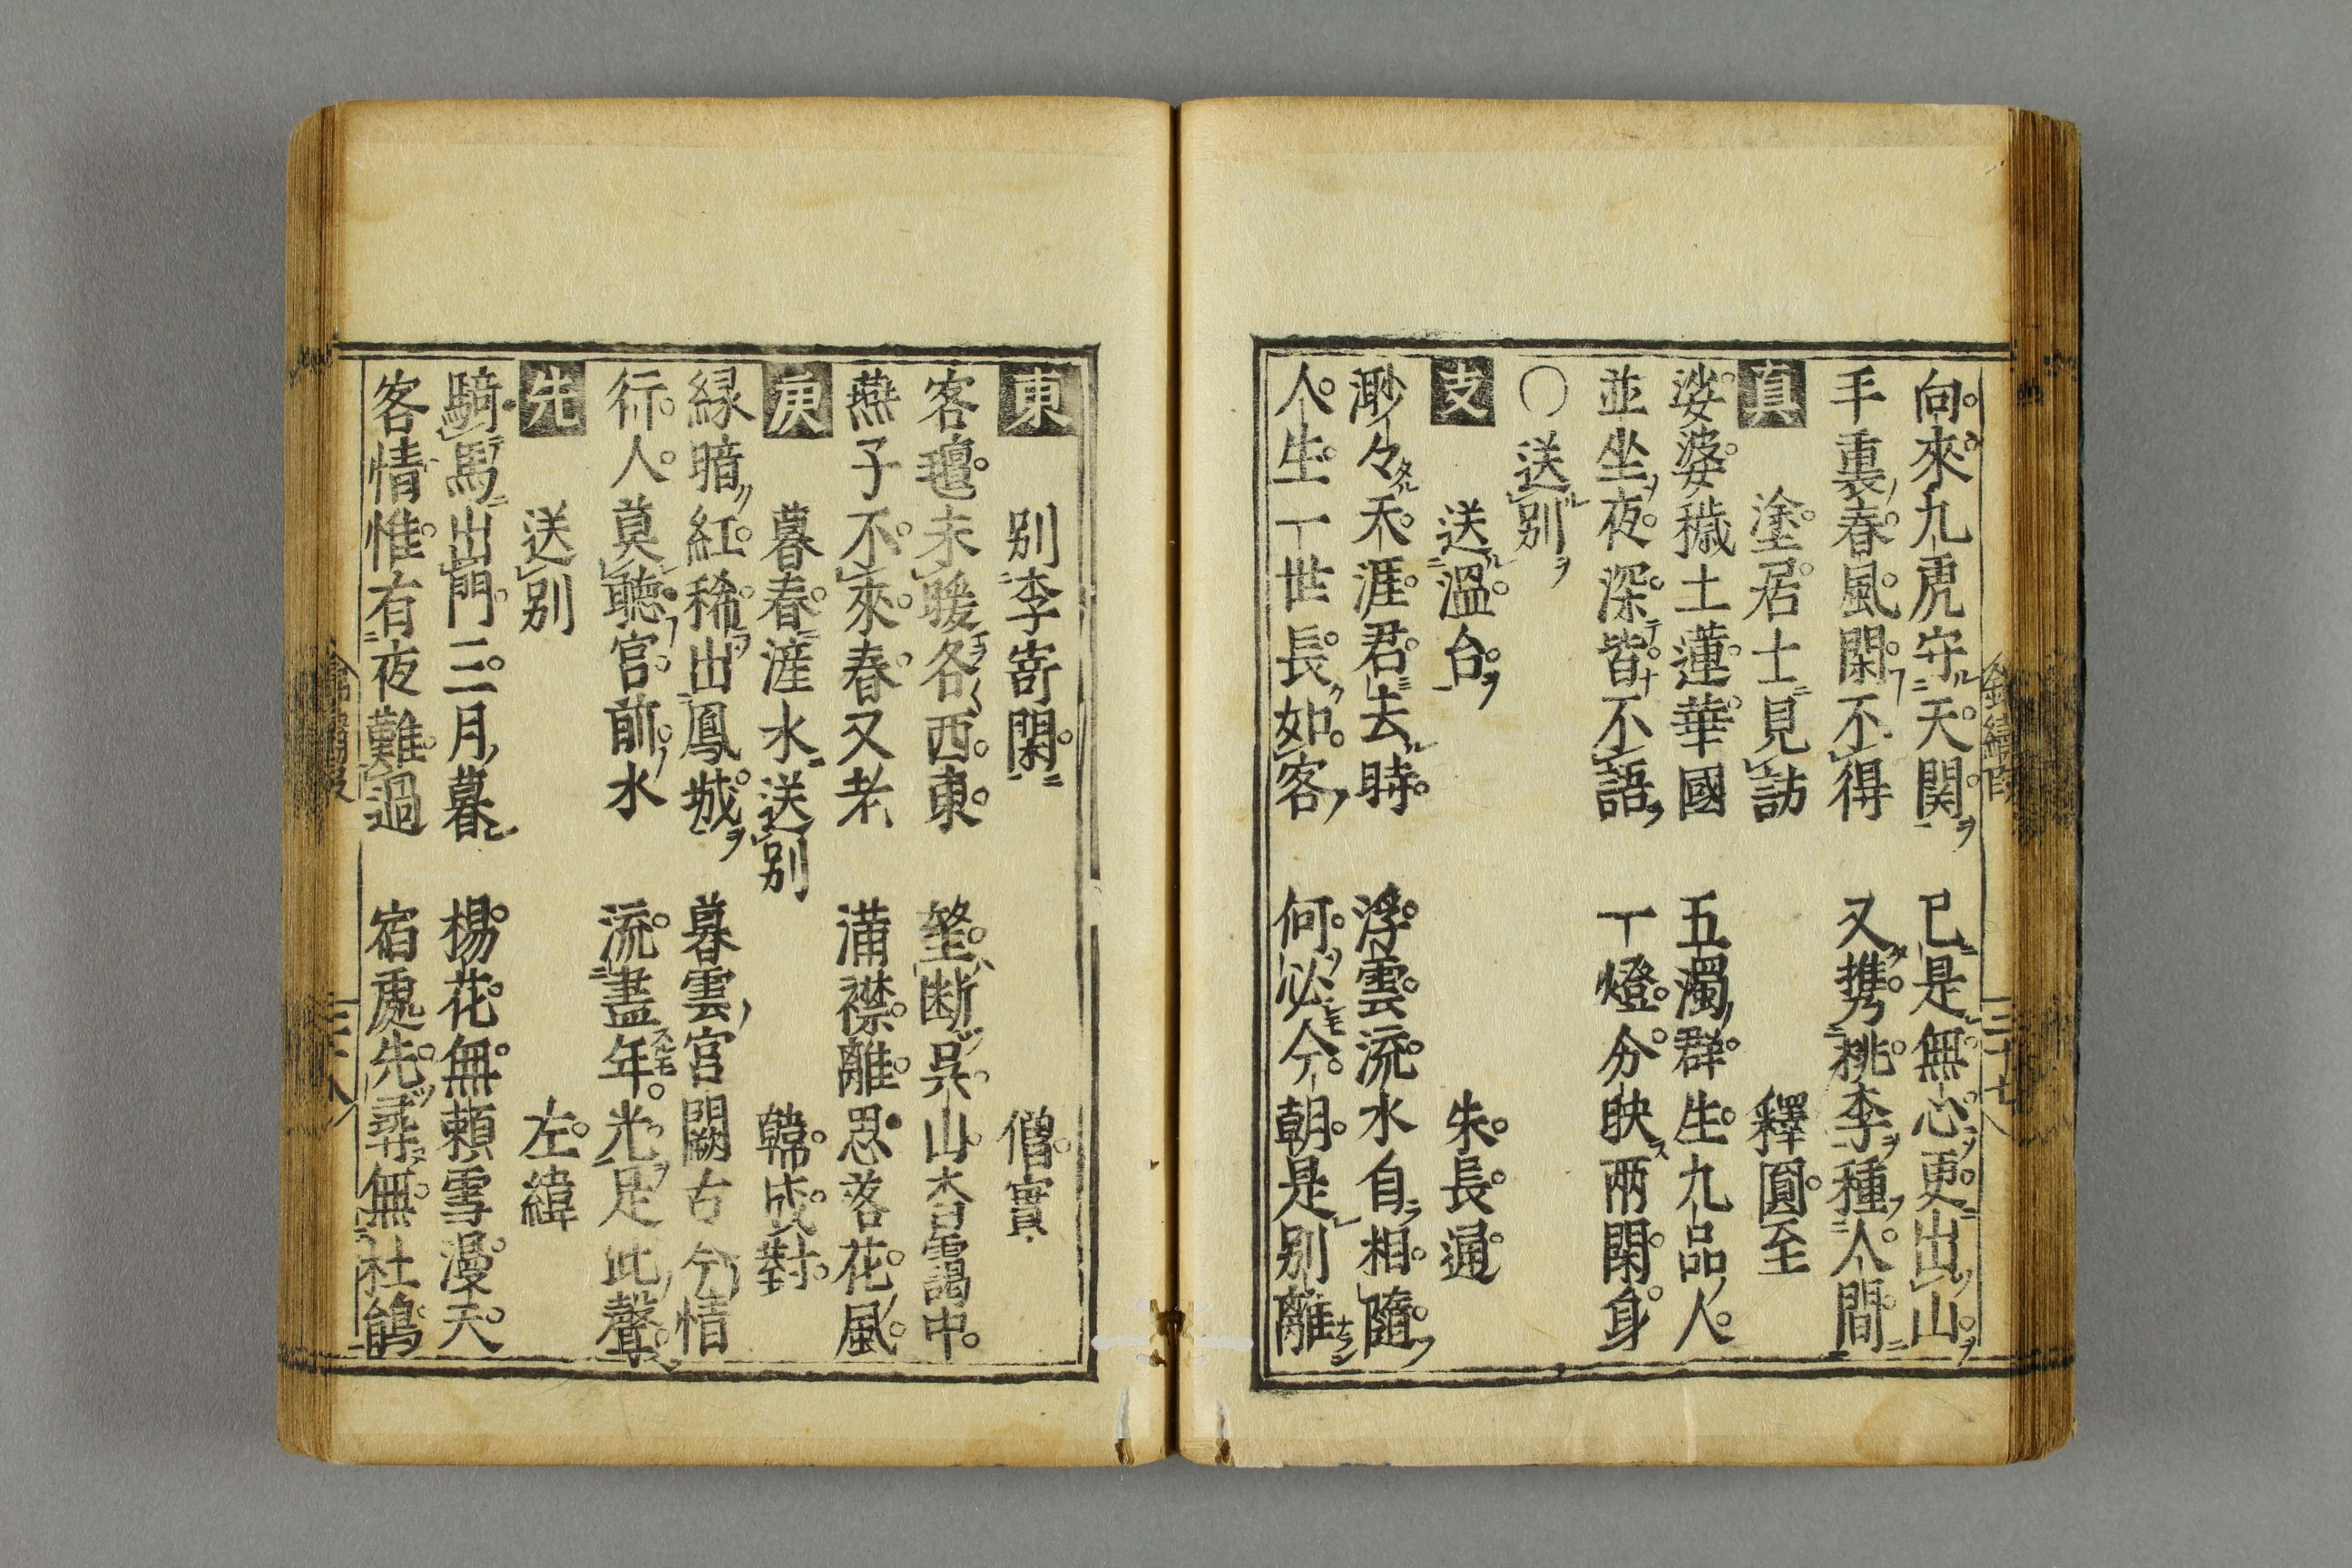 向來九虎守天関 已是無心更出山
手裏春風閑不得 又携桃李種人間
真 塗居士見訪 釋圓至
娑婆穢土蓮華國 五濁群生九品人
並坐夜深皆不語 一燈分映兩閑身
〇送別
支 送溫台 朱長通
渺々禾涯君去時 浮雲流水自相隨
人生一世長如客 何必今朝是別離
三十七
東 別李嵜閑 僧實
客氊未暖各西東 望断呉山杳靄中
燕子不來春又老 滿襟離思落花風
庚 暮春滻水送別 韓成對
緑暗紅稀出鳳城 暮雲宮闕古今情
行人莫聽官前水 流盡年光是此聲
先 送別 左緯
騎馬出門三月暮 楊花無頼雪漫天
客情惟有夜難過 宿處先尋無杜鵑